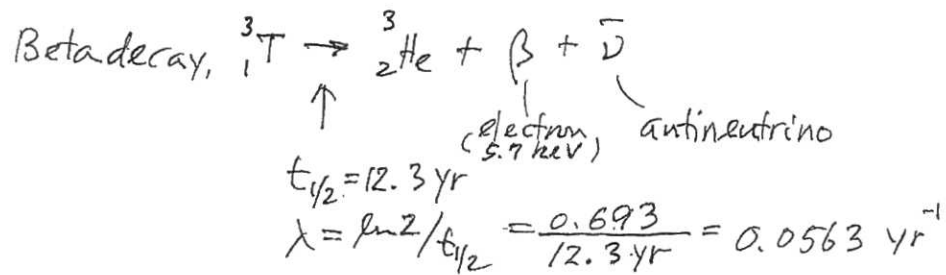 Beta decay, ³₁T → ³₂He + β + ν̄
↑
(electron 5.7 keV) antineutrino
t₁/₂ = 12.3 yr
λ = ln2/t₁/₂ = 0.693/12.3 yr = 0.0563 yr⁻¹